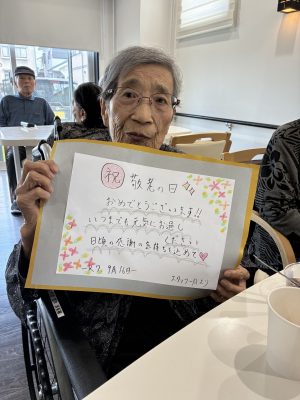 祝 敬老の日
おめでとうございます!!
いつまでも元気にお過し
ください
日頃の感謝の気持ちを込めて
9月16日
スタッフ一同より